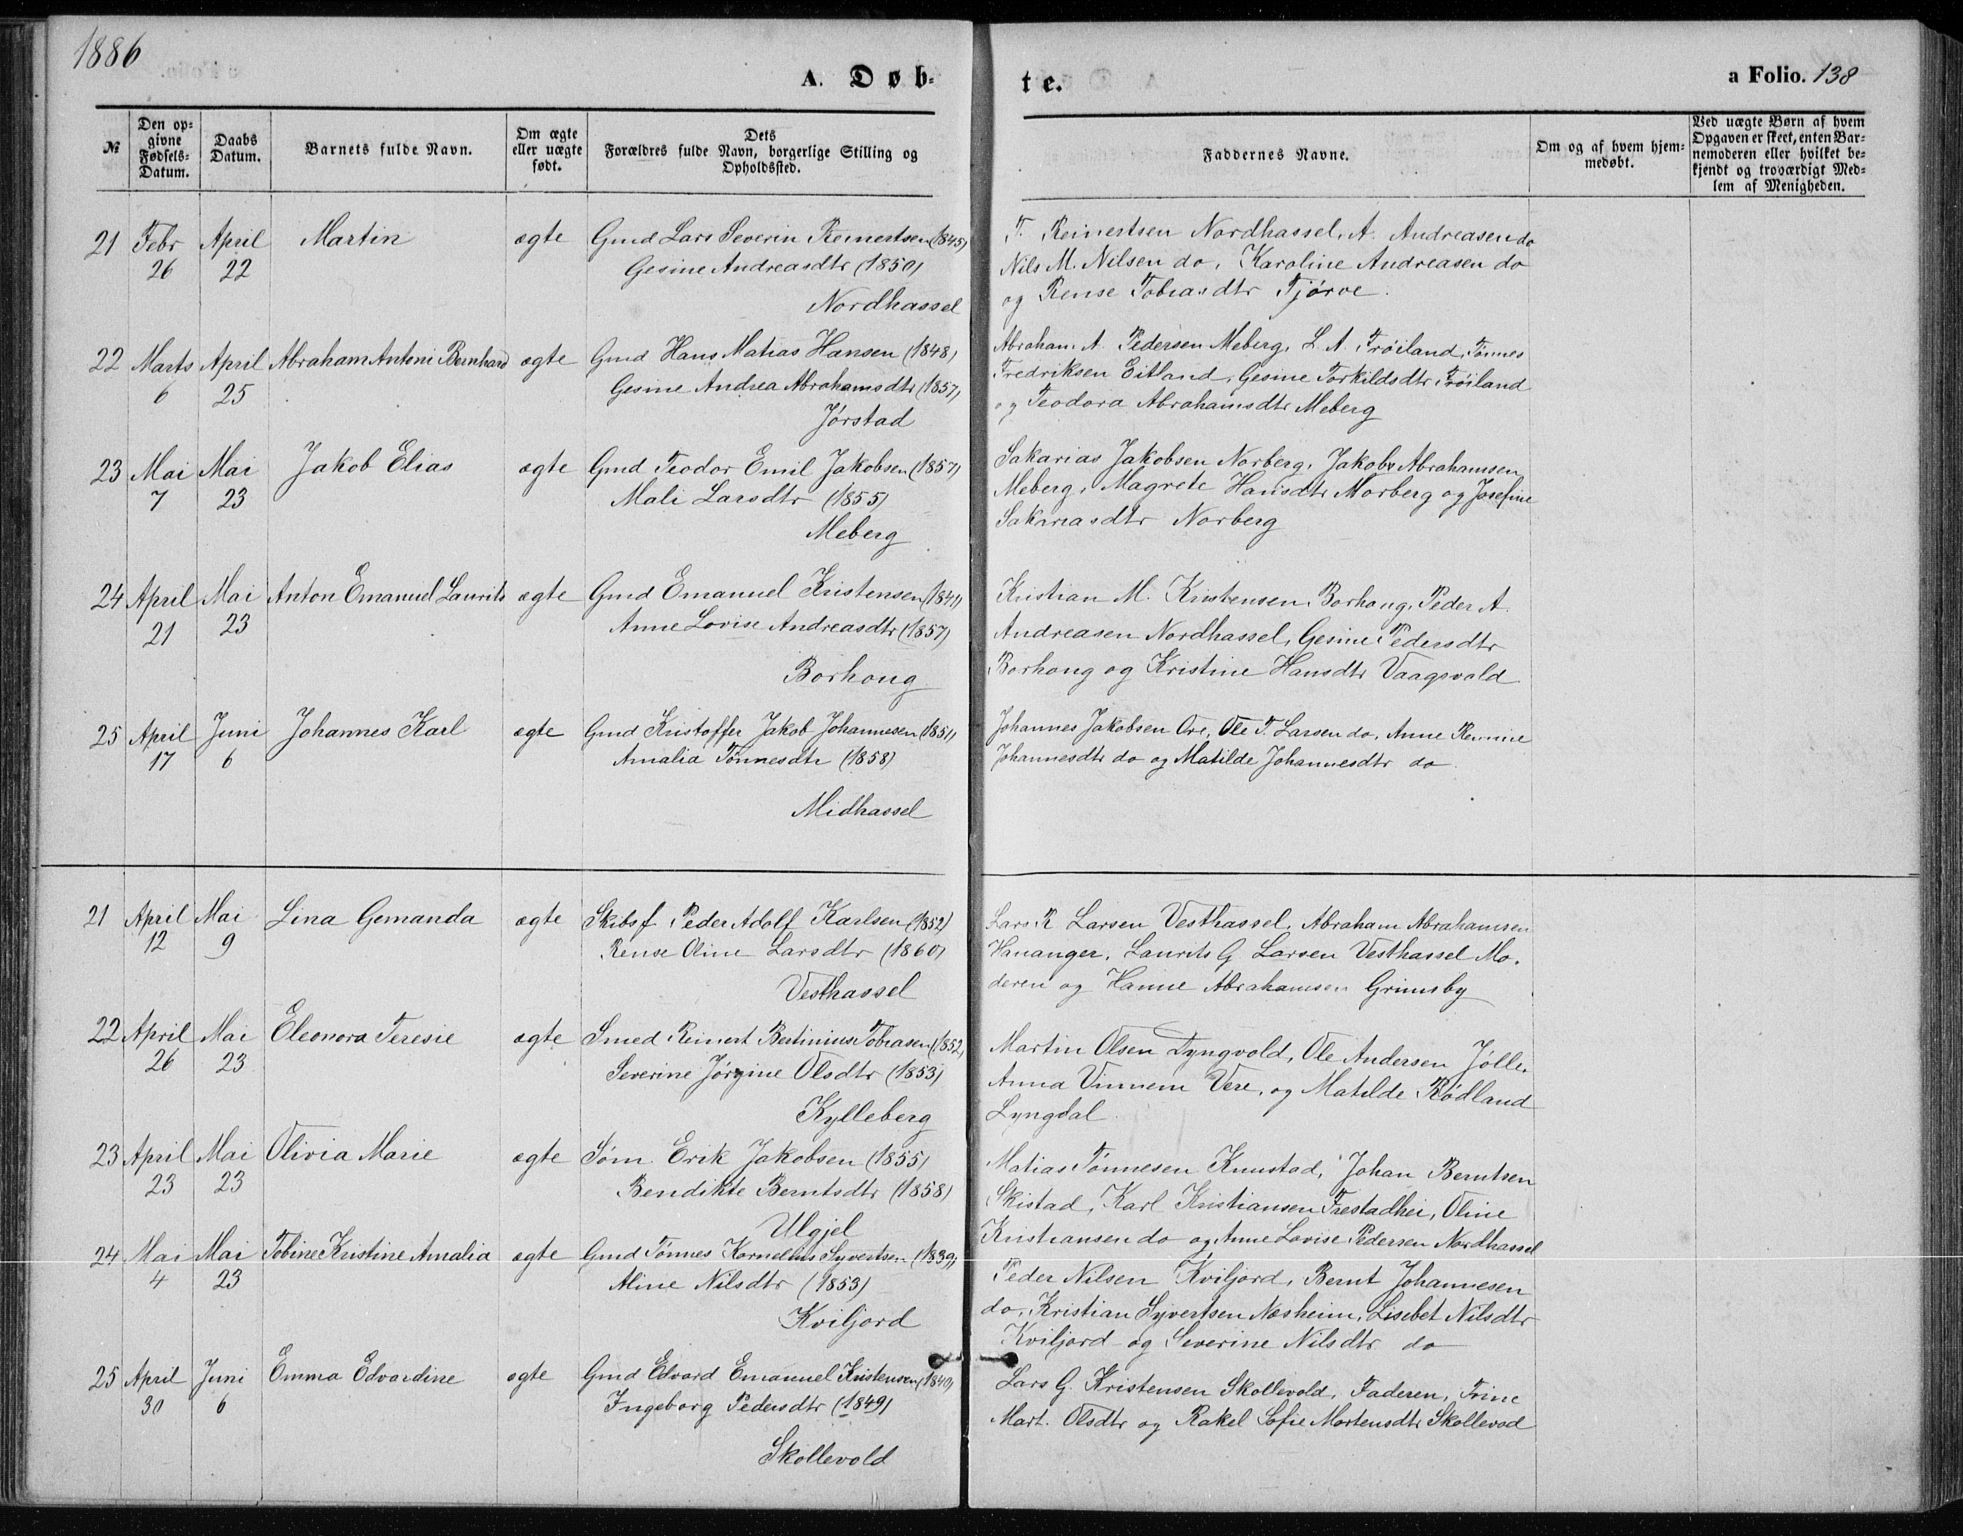 1886
A. Døb-
te.
a Folio. 138
№
Den op-
givne
Fødsels-
Datum.
Daabs
Datum.
Barnets fulde Navn.
Om ægte
eller uægte
født.
Dets
Forældres fulde Navn, borgerlige Stilling og
Opholdssted.
Faddernes Navne.
Om og af hvem hjem-
medøbt.
Ved uægte Børn af hvem
Opgaven er skeet, enten Bar-
nemoderen eller hvilket be-
kjendt og troværdigt Med-
lem af Menigheden.
21 Febr April Martin ægte Gmd Lars Severin Reinertsen (1845)
26 22 Gesine Andreasdtr (1850)
Nordhassel
T. Reinertsen Nordhassel, A. Andreasen do
Nils M. Nilsen do, Karoline Andreasen do
og Rense Tobiasdtr Tjørve.
22 Marts April Abraham Antoni Bernhard ægte Gmd Hans Matias Hansen (1848)
6 25 Gesine Andrea Abrahamsdtr (1857)
Jørstad
Abraham A. Pedersen Meberg, L. A. Frøiland, Tønnes
Fredriksen Eitland, Gesine Torkildsdtr Frøiland
og Teodora Abrahamsdtr Meberg
23 Mai Mai Jakob Elias ægte Gmd Teodor Emil Jakobsen (1857)
7 23 Mali Larsdtr (1855)
Meberg
Sakarias Jakobsen Norberg, Jakob Abrahamsen
Meberg, Magrete Hansdtr Norberg og Josefine
Sakariasdtr Norberg
24 April Mai Anton Emanuel Laurits ægte Gmd Emanuel Kristensen (1841)
21 23 Anne Lovise Andreasdtr (1857)
Borhoug
Kristian M. Kristensen Borhoug, Peder A.
Andreasen Nordhassel, Gesine Pedersdtr
Borhoug og Kristine Hansdtr Vaagsvold
25 April Juni Johannes Karl ægte Gmd Kristoffer Jakob Johannesen (1851)
17 6 Amalia Tønnesdtr (1858)
Midhassel
Johannes Jakobsen Ore, Ole T. Larsen do, Anne
Johannesdtr do og Matilde Johannesdtr do
21 April Mai Lina Gemanda ægte Skibsf. Peder Adolf Karlsen (1852)
12 9 Rense Oline Larsdtr (1860)
Vesthassel
Lars R Larsen Vesthassel, Abraham Abrahamsen
Hananger, Laurits G Larsen Vesthassel Mo-
deren og Hanne Abrahamsen Grimsby
22 April Mai Eleonora Teresie ægte Smed Reinert Bertinius Tobiasen (1852)
26 23 Severine Jørgine Olsdtr (1853)
Kylleberg
Martin Olsen Lyngvold, Ole Andersen Jølle,
Anna Vinnem Vere, og Matilde Rødland
Lyngdal
23 April Mai Olivia Marie ægte Søm. Erik Jakobsen (1855)
23 23 Bendikte Berntsdtr (1858)
Ulgjel
Matias Tønnesen Knustad, Johan Berntsen
Skistad, Karl Kristiansen Frestadhei, Oline
Kristiansen do og Anne Lovise Pedersen Nordhassel
24 Mai Mai Tobine Kristine Amalia ægte Gmd Tønnes Kornelius Syvertsen (1839)
4 23 Aline Nilsdtr (1853)
Kviljord
Peder Nilsen Kviljord, Bernt Johannesen
do, Kristian Syvertsen Næsheim, Lisebet Nilsdtr
Kviljord og Severine Nilsdtr do
25 April Juni Emma Edvardine ægte Gmd Edvard Emanuel Kristensen (1840)
30 6 Ingeborg Pedersdtr (1849)
Skollevold
Lars G. Kristensen Skollevold, Faderen, Trine
Mart. Olsdtr og Rakel Sofie Mortensdtr Skollevod